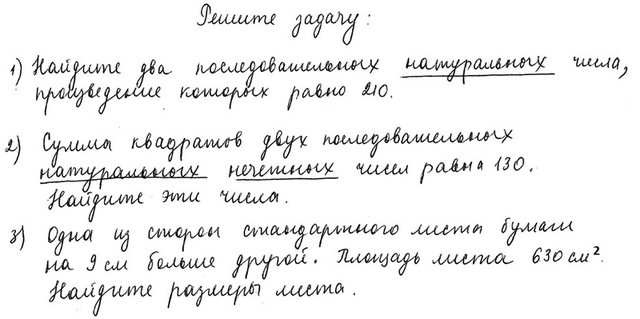 Решите задачу:
1) Найдите два последовательных натуральных числа,
произведение которых равно 210.
2) Сумма квадратов двух последовательных
натуральных нечетных чисел равна 130.
Найдите эти числа.
3) Одна из сторон стандартного листа бумаги
на 9 см больше другой. Площадь листа 630 см².
Найдите размеры листа.